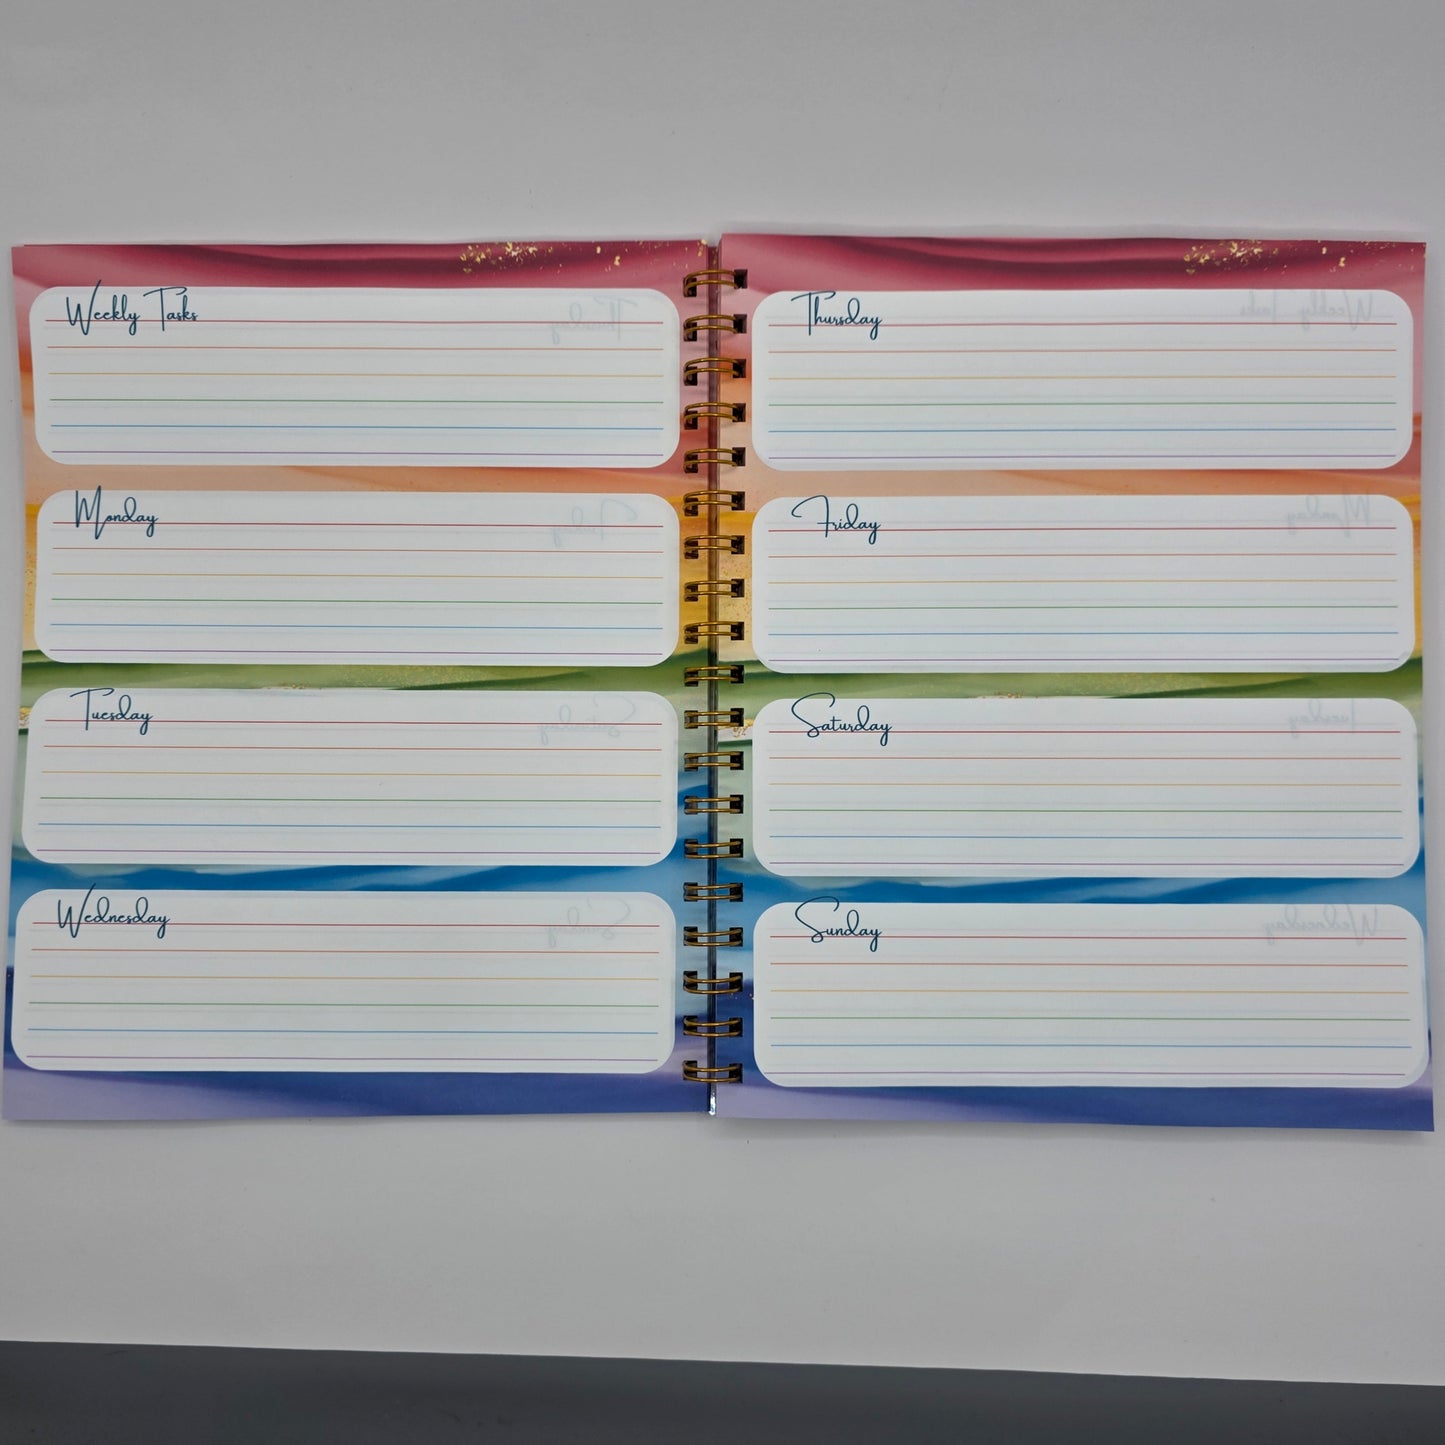 Weekly Tasks
Monday
Tuesday
Wednesday
Thursday
Friday
Saturday
Sunday